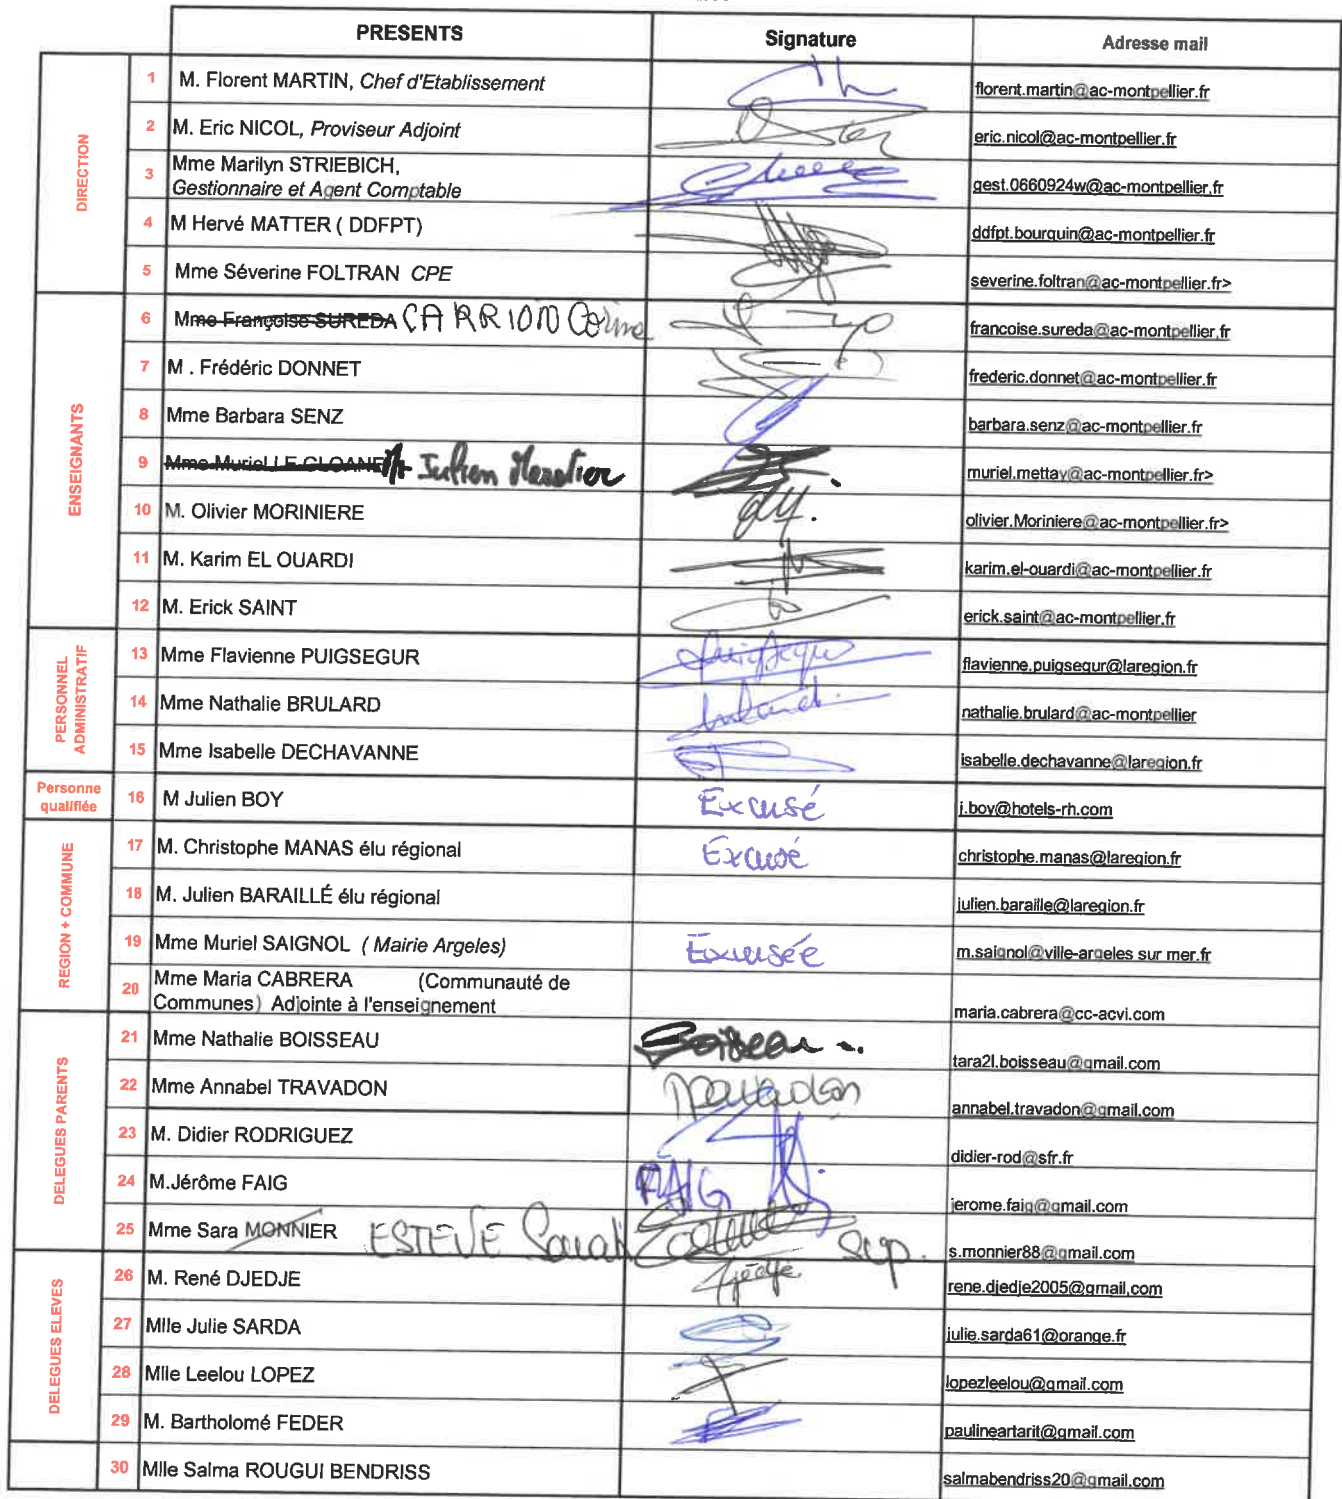 PRESENTS Signature Adresse mail
DIRECTION
1 M. Florent MARTIN, Chef d'Etablissement florent.martin@ac-montpellier.fr
2 M. Eric NICOL, Proviseur Adjoint eric.nicol@ac-montpellier.fr
3 Mme Marilyn STRIEBICH,
Gestionnaire et Agent Comptable gest.0660924w@ac-montpellier.fr
4 M Hervé MATTER ( DDFPT) ddfpt.bourquin@ac-montpellier.fr
5 Mme Séverine FOLTRAN CPE severine.foltran@ac-montpellier.fr>
ENSEIGNANTS
6 Mme Françoise SUREDA CARRION francoise.sureda@ac-montpellier.fr
7 M . Frédéric DONNET frederic.donnet@ac-montpellier.fr
8 Mme Barbara SENZ barbara.senz@ac-montpellier.fr
9 Mme Muriel LE CLOANE Mr Julien muriel.mettay@ac-montpellier.fr>
10 M. Olivier MORINIERE olivier.Moriniere@ac-montpellier.fr>
11 M. Karim EL OUARDI karim.el-ouardi@ac-montpellier.fr
12 M. Erick SAINT erick.saint@ac-montpellier.fr
PERSONNEL
ADMINISTRATIF
13 Mme Flavienne PUIGSEGUR Puigsegur flavienne.puigsegur@laregion.fr
14 Mme Nathalie BRULARD nathalie.brulard@ac-montpellier
15 Mme Isabelle DECHAVANNE isabelle.dechavanne@laregion.fr
Personne
qualifiée
16 M Julien BOY Excusé j.boy@hotels-rh.com
REGION + COMMUNE
17 M. Christophe MANAS élu régional Excusé christophe.manas@laregion.fr
18 M. Julien BARAILLÉ élu régional julien.baraille@laregion.fr
19 Mme Muriel SAIGNOL ( Mairie Argeles) Excusée m.saignol@ville-argeles sur mer.fr
20 Mme Maria CABRERA (Communauté de
Communes) Adjointe à l'enseignement maria.cabrera@cc-acvi.com
DELEGUES PARENTS
21 Mme Nathalie BOISSEAU Boisseau tara2l.boisseau@gmail.com
22 Mme Annabel TRAVADON Travadon annabel.travadon@gmail.com
23 M. Didier RODRIGUEZ didier-rod@sfr.fr
24 M.Jérôme FAIG FAIG jerome.faig@gmail.com
25 Mme Sara MONNIER ESTEVE Sarah sup. s.monnier88@gmail.com
DELEGUES ELEVES
26 M. René DJEDJE Djedje rene.djedje2005@gmail.com
27 Mlle Julie SARDA julie.sarda61@orange.fr
28 Mlle Leelou LOPEZ lopezleelou@gmail.com
29 M. Bartholomé FEDER paulineartarit@gmail.com
30 Mlle Salma ROUGUI BENDRISS salmabendriss20@gmail.com